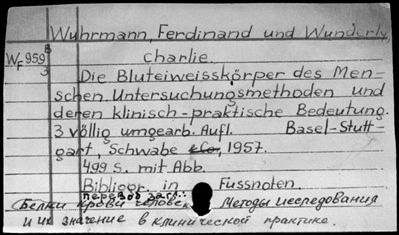 Wuhrmann, Ferdinand und Wunderly,
Charlie.
WF 959 B
3
Die Bluteiweisskörper des Men=
schen. Untersuchungsmethoden und
deren klinisch-praktische Bedeutung.
3 völlig umgearb. Aufl. Basel-Stutt-
gart, Schwabe &Co, 1957.
499 S. mit Abb.
Bibliogr. in Fussnoten.
перевод загл.:
Белки крови человек Методы исследования
и их значение в клинической практике.